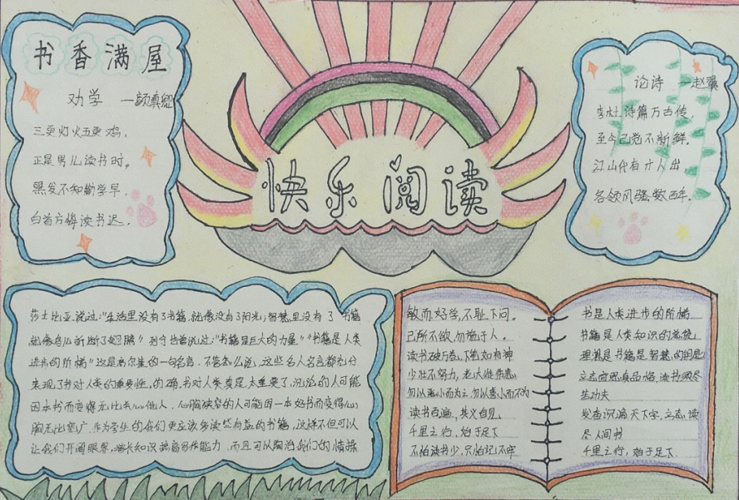 书香满屋
劝学 一颜真卿
三更灯火五更鸡,
正是男儿读书时。
黑发不知勤学早,
白首方悔读书迟。
快乐阅读
论诗 一赵翼
李杜诗篇万古传,
至今已觉不新鲜。
江山代有才人出
各领风骚数百年。
莎士比亚说过:“生活里没有了书籍,就像没有了阳光;智慧里没有了书籍
就像鸟儿折断了翅膀” 列宁也说过:“书籍是巨大的力量” “书籍是人类
进步的阶梯” 这是高尔基的一句名言,不管怎么说,这些名人名言都充分
体现了书对人类的重要性。的确,书对人类真是太重要了,
因本书而变得无比 他人,心胸狭窄的人可能因一本好书而变得心
胸无比宽广,作为学生的我们更应该多读些有益的书籍,这样不但可以
让我们开阔眼界,增长知识 能力,而且可以陶冶我们的情操
敏而好学,不耻下问。
己所不欲,勿施于人。
读书破万卷,下笔如有神
少壮不努力,老大徒伤悲
勿以恶小而为之,勿以善小而不为
读书百遍,其义自见
千里之行,始于足下
不怕读书少,只怕记不牢
书是人类进步的阶梯
书籍是人类知识的总统
理想是书籍是智慧的钥匙
立志宜思真品格,读书须尽
苦功夫
发奋识遍天下字,立志读
尽人间书
千里之行,始于足下